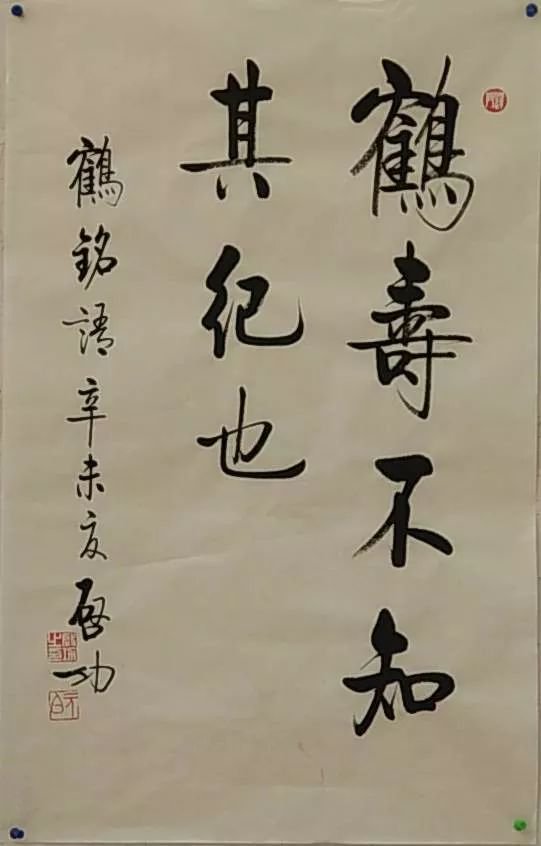 鶴壽不知
其紀也
鶴銘語辛未夏啓功